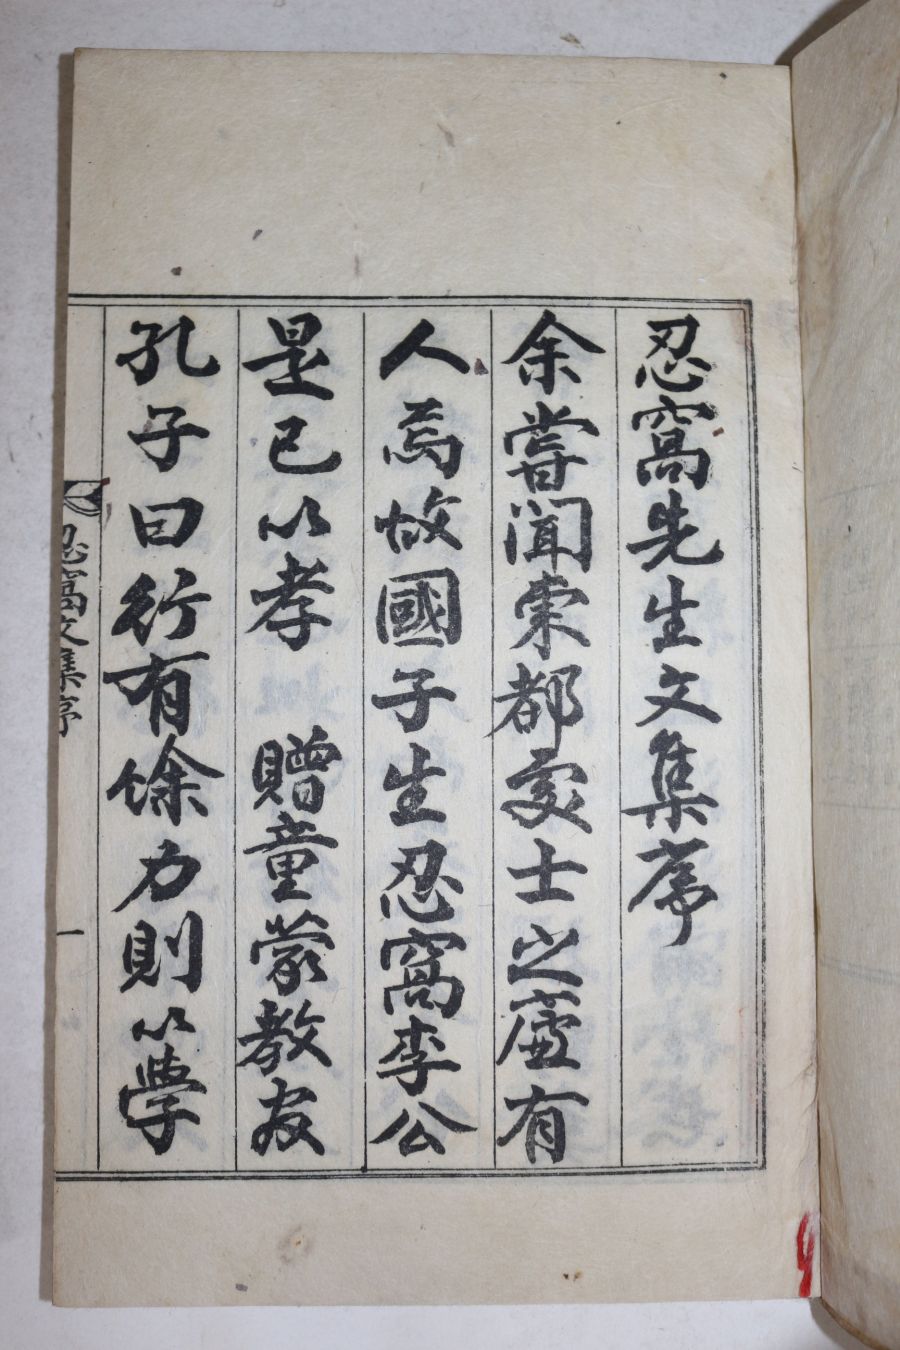 忍窩先生文集序
余嘗聞東都處士之廬有
人焉故國子生忍窩李公
是已以孝 贈童蒙教官
孔子曰行有馀力則以學
忍窩文集序
一